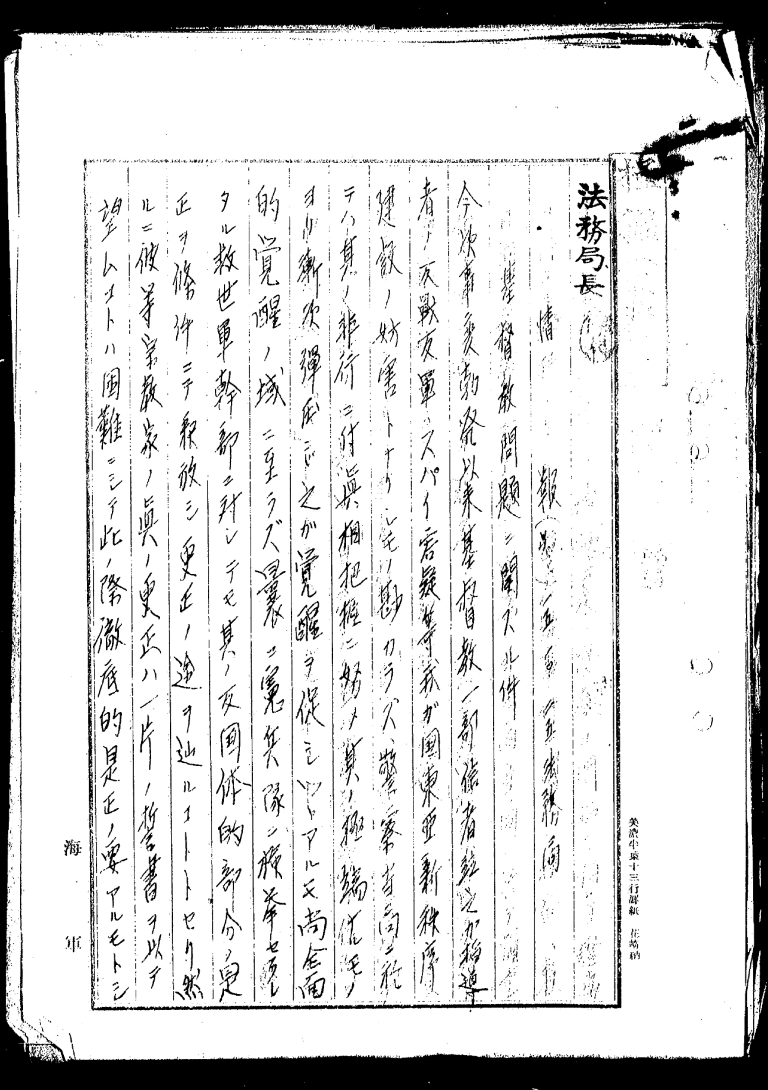 法務局長
情報
基督教問題ニ関スル件
今次事変勃発以来基督教一部信者並之ガ指導
者ノ反戦反軍スパイ容疑等我ガ国東亜新秩序
建設ノ妨害トナリシモノ勘カラズ、警察当局ニ於
テハ其ノ非行ニ付真相把握ニ努メ其ノ極端ナルモノ
ヨリ漸次弾圧シ之が覚醒ヲ促シツヽアルモ尚全面
的覚醒ノ域ニ至ラズ曩ニ憲兵隊ニ検挙セラレ
タル救世軍幹部ニ対シテモ其ノ反国体的部分ノ是
正ヲ條件ニテ釈放シ更正ノ途ヲ辿ルコトトセリ然
ルニ彼等宗教家ノ真ノ更正ハ一片ノ誓書ヲ以テ
望ムコトハ困難ニシテ此ノ際徹底的是正ノ要アルモトシ
美濃半葉十三行罫紙
海軍